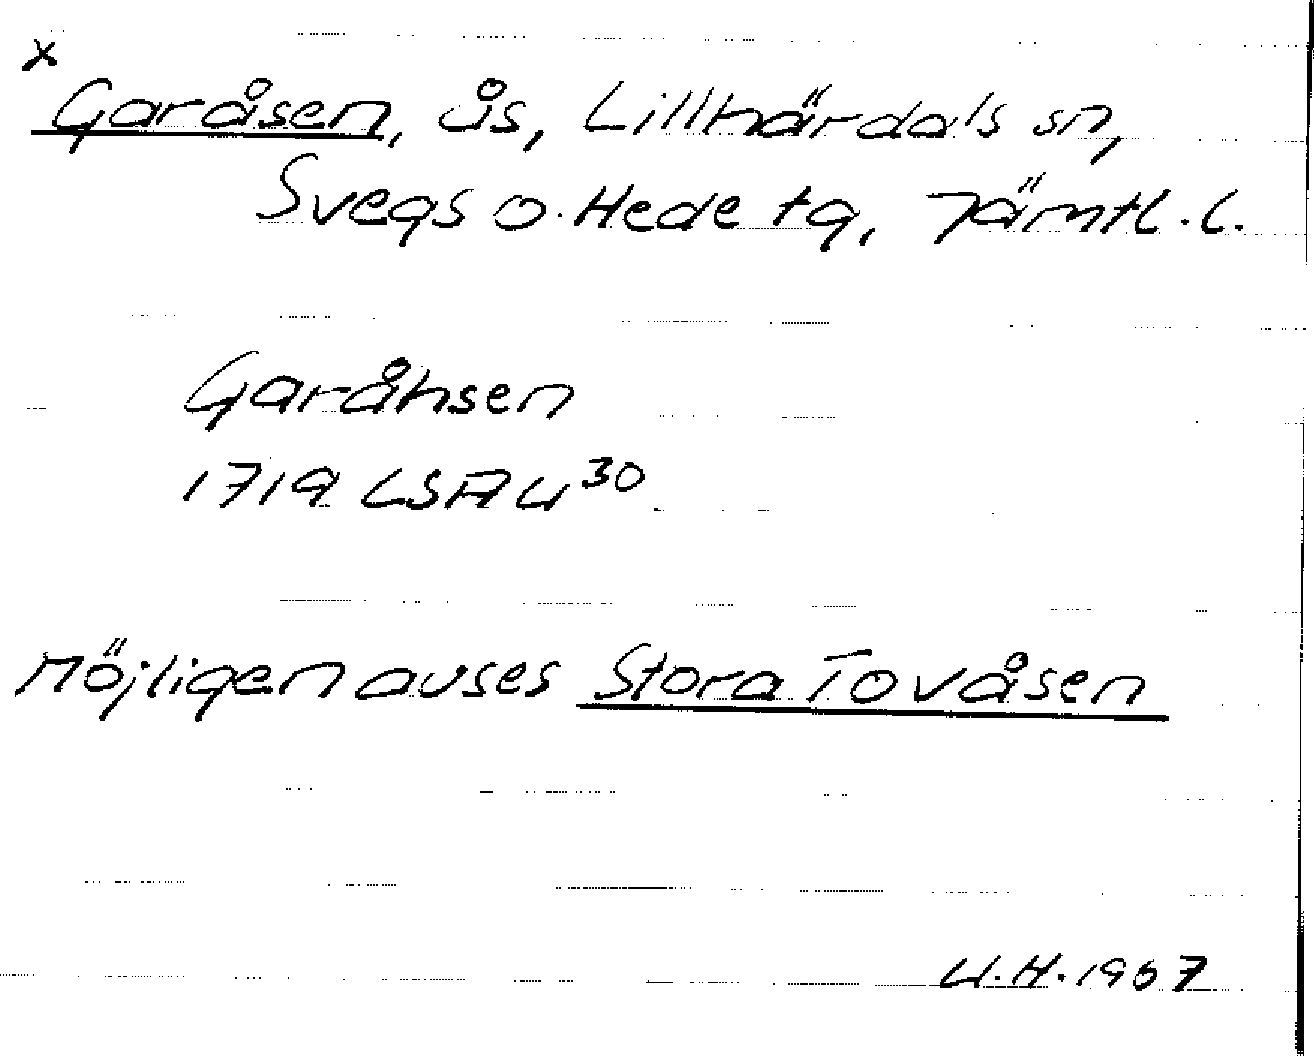 x
Garåsen, ås, Lillhärdals sn,
Svegs o. Hede tg, Jämtl. l.
Garåhsen
1719 LSA U³⁰
Möjligen avses Stora Tovåsen
U.H. 1967